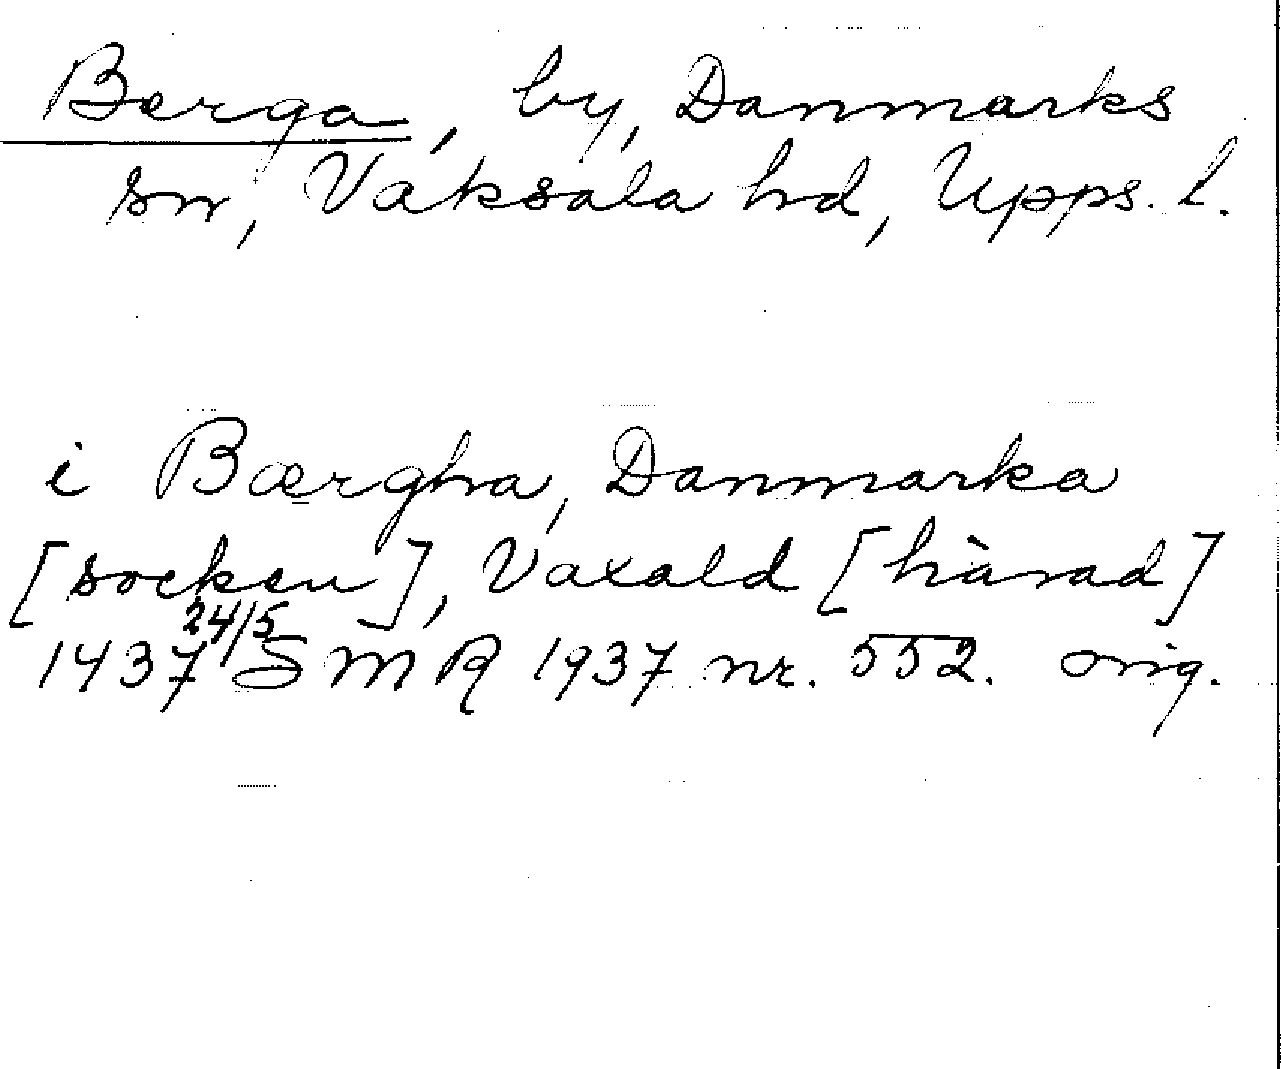 Berga, by, Danmarks
sn, Vaksala hd, Upps. l.
i Bærgha, Danmarka
[socken], Vaxald [härad]
1437 24/5 SMR 1937 nr. 552. orig.